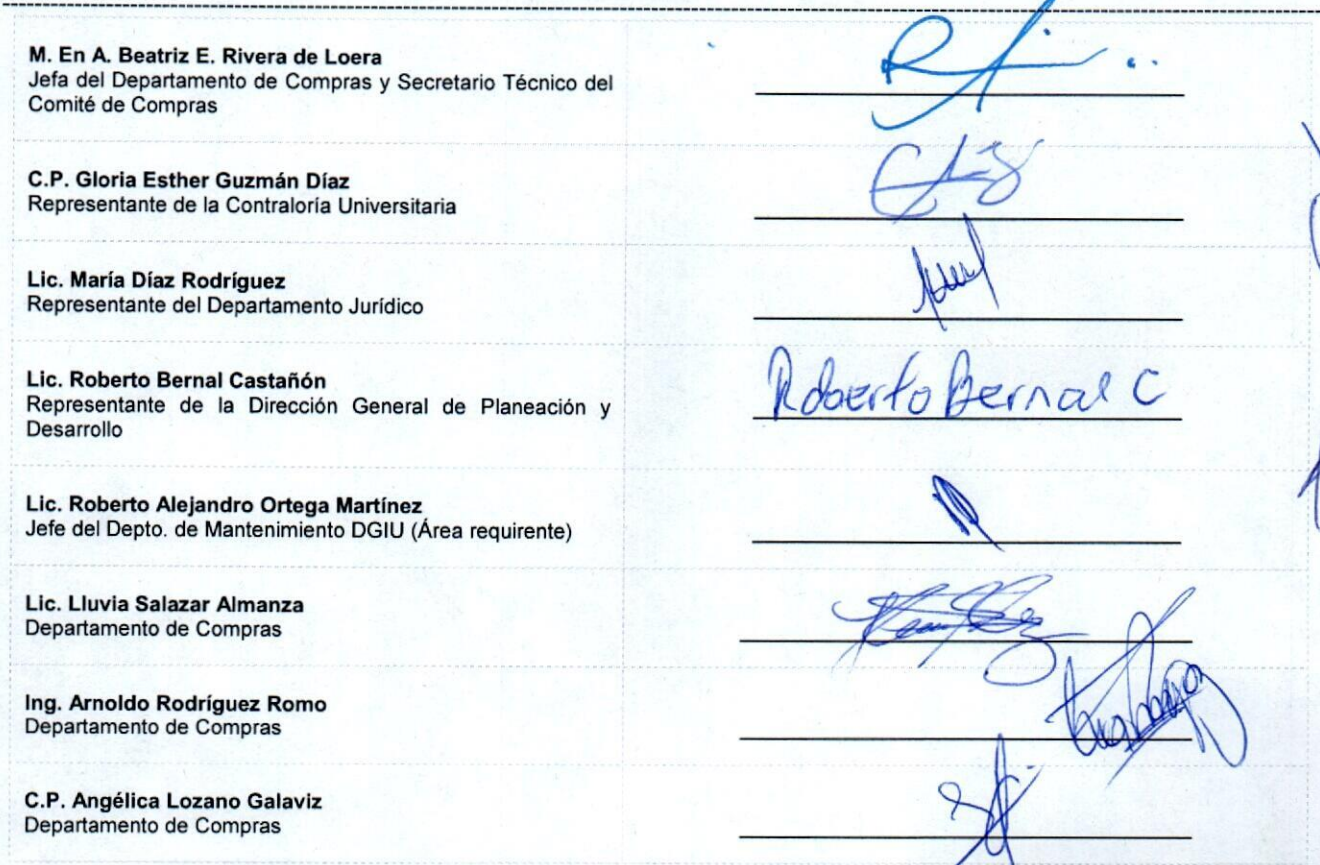 M. En A. Beatriz E. Rivera de Loera
Jefa del Departamento de Compras y Secretario Técnico del
Comité de Compras
C.P. Gloria Esther Guzmán Díaz
Representante de la Contraloría Universitaria
Lic. María Díaz Rodríguez
Representante del Departamento Jurídico
Lic. Roberto Bernal Castañón
Representante de la Dirección General de Planeación y
Desarrollo
Roberto Bernal C
Lic. Roberto Alejandro Ortega Martínez
Jefe del Depto. de Mantenimiento DGIU (Área requirente)
Lic. Lluvia Salazar Almanza
Departamento de Compras
Ing. Arnoldo Rodríguez Romo
Departamento de Compras
C.P. Angélica Lozano Galaviz
Departamento de Compras